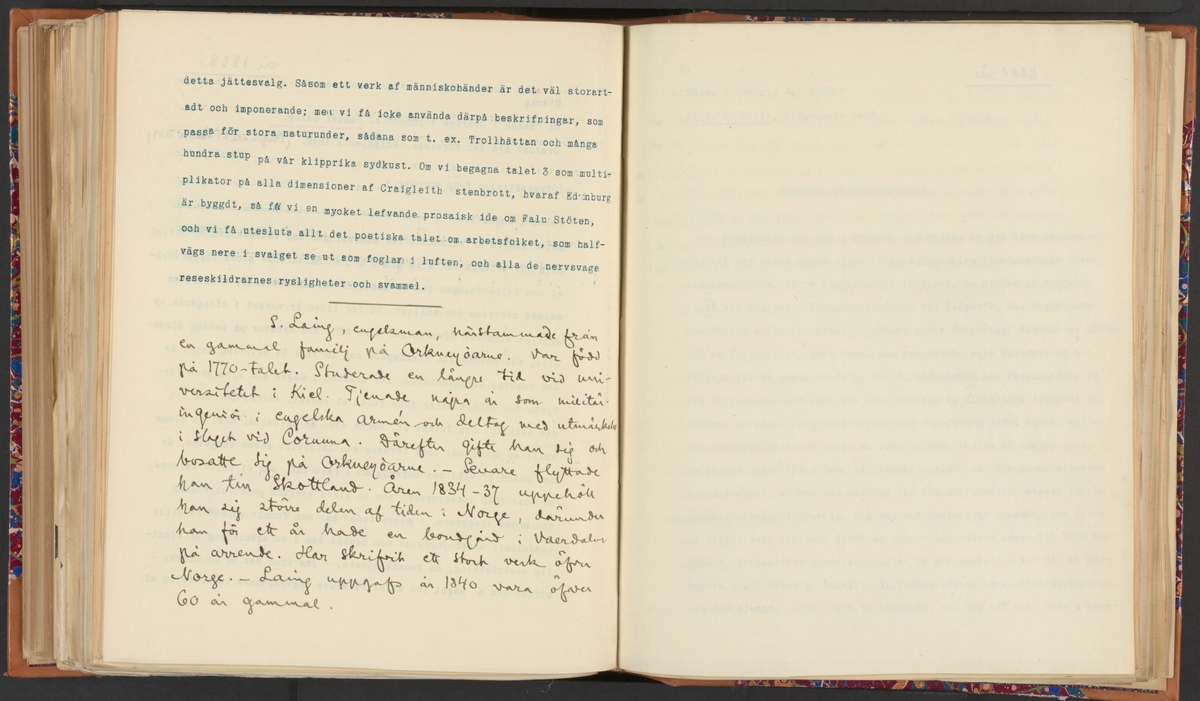 detta jättesvalg. Såsom ett verk af människohänder är det väl storart-
adt och imponerande; men vi få icke använda därpå beskrifningar, som
passa för stora naturunder, sådana som t. ex. Trollhättan och många
hundra stup på vår klipprika sydkust. Om vi begagna talet 3 som multi-
plikator på alla dimensioner af Craigleith stenbrott, hvaraf Edinburg
är byggdt, så få vi en mycket lefvande prosaisk ide om Falu Stöten,
och vi få utesluta allt det poetiska talet om arbetsfolket, som half-
vägs nere i svalget se ut som foglar i luften, och alla de nervsvage
reseskildrarnes rysligheter och svammel.
S. Laing, engelsman, härstammade från
en gammal familj på Orkneyöarne. Var född
på 1770-talet. Studerade en längre tid vid uni-
versitetet i Kiel. Tjenade några år som militär-
ingeniör i engelska armén och deltog med utmärkelse
i slaget vid Corunna. Därefter gifte han sig och
bosatte sig på Orkneyöarne. – Senare flyttade
han till Skottland. Åren 1834-37 uppehöll
han sig större delen af tiden i Norge, därunder
han för ett år hade en bondgård i Værdalen
på arrende. Har skrifvit ett stort verk öfver
Norge. – Laing uppgafs år 1840 vara öfver
60 år gammal.